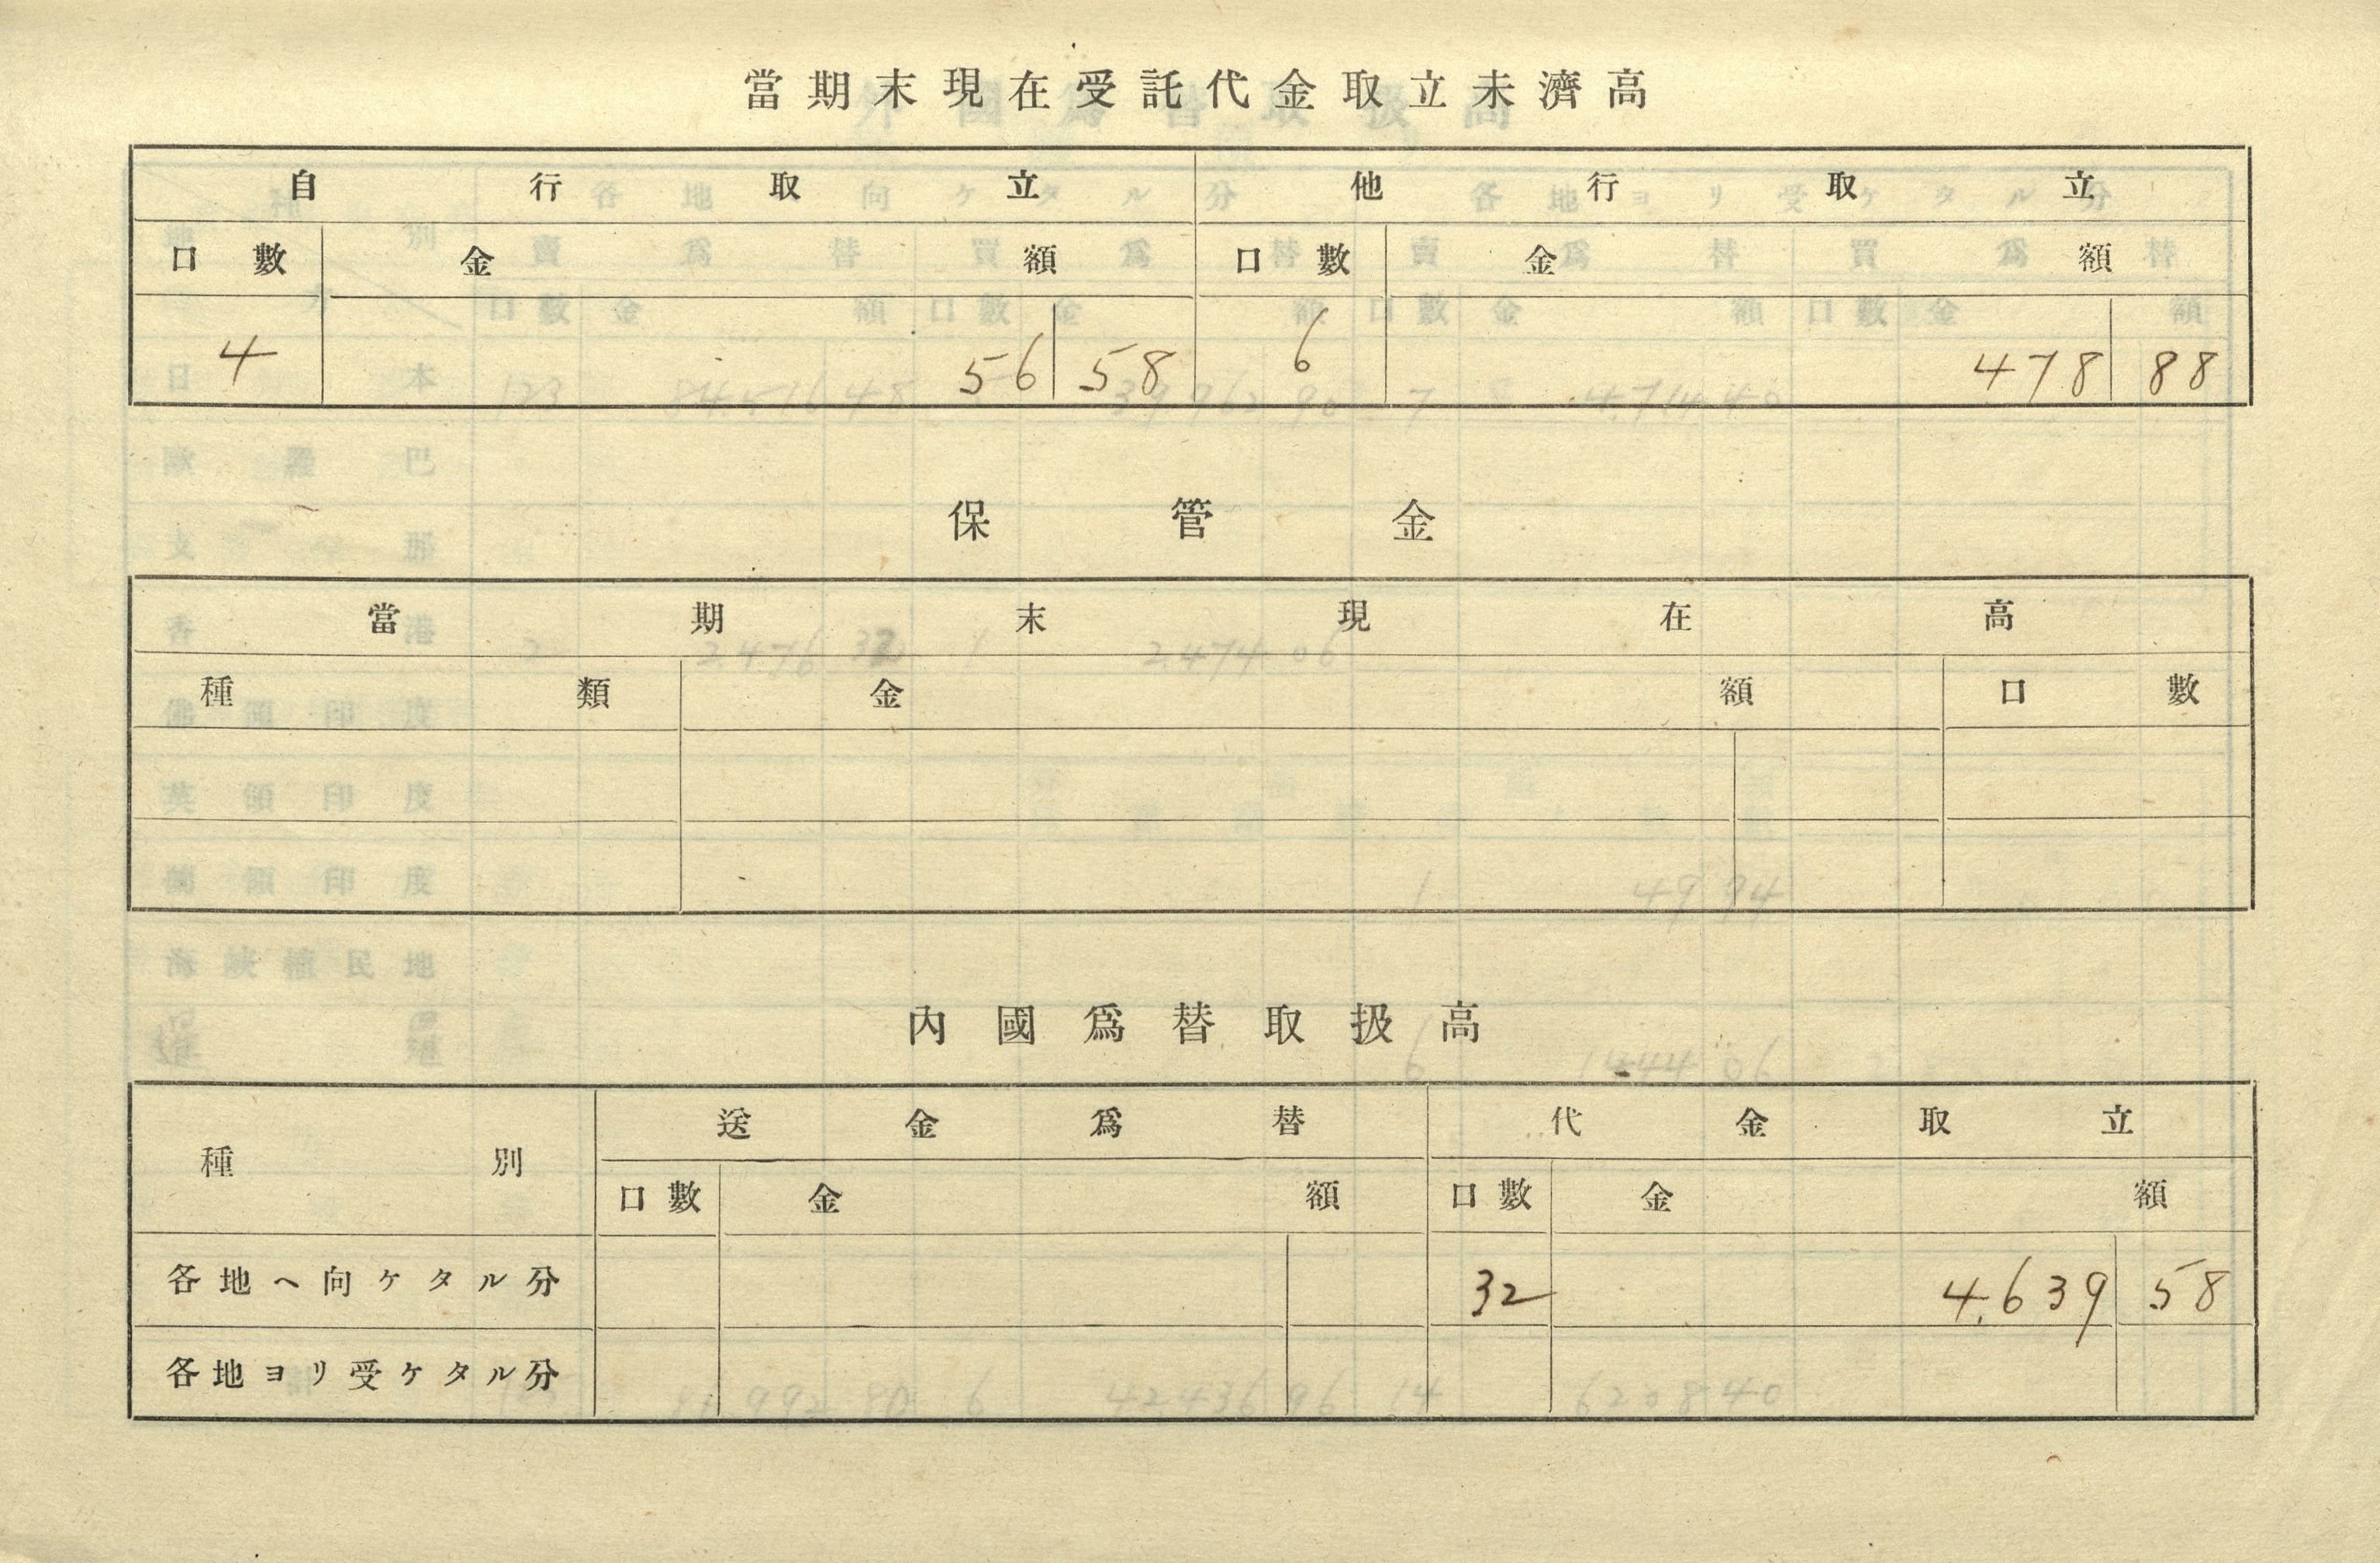 當期末現在受託代金取立未濟高
自行取立 他行取立
口數 金額 口數 金額
4 56 58 6 478 88
保管金
當期末現在高
種類 金額 口數
內國爲替取扱高
種別 送金爲替 代金取立
口數 金額 口數 金額
各地ヘ向ケタル分 32 4,639 58
各地ヨリ受ケタル分